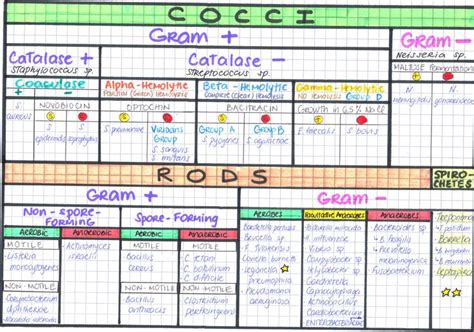 COCCI
Gram +
Gram -
Catalase +
Staphylococcus sp.
Catalase -
Streptococcus sp.
Neisseria sp.
MALTOSE Fermentation
Coagulase
+
-
Alpha-Hemolytic
Partial (Green) Hemolysis
Beta-Hemolytic
Complete (Clear) Hemolysis
Gamma-Hemolytic
Group D
NOVOBIOCIN
OPTOCHIN
BACITRACIN
Growth in 6.5% NaCl
S. aureus
S. epidermidis
S. saprophyticus
S. pneumoniae
Viridans Group
S. salivarius
S. mutans
Group A
S. pyogenes
Group B
S. agalactiae
E. faecalis
S. bovis
N. meningitidis
N. gonorrhoeae
RODS
SPIROCHETES
Gram +
Gram -
Non-Spore-Forming
Spore-Forming
AEROBIC
ANAEROBIC
AEROBIC
ANAEROBIC
AEROBES
Facultative Anaerobes
ANAEROBES
MOTILE
Listeria monocytogenes
Actinomyces israelii
NON-MOTILE
Corynebacterium diphtheriae
MOTILE
Bacillus cereus
C. tetani
C. botulinum
C. difficile
NON-MOTILE
Bacillus anthracis
Clostridium perfringens
Bordetella pertussis
Brucella sp.
Coxiella burnetii
Legionella
Pseudomonas
Vibrio
H. influenzae
Helicobacter
Gardnerella
Capnocytophaga
Cardiobacterium
ENTEROBACTERIACEAE
Bacteroides sp.
B. fragilis
Prevotella
Fusobacterium
Treponema
Borrelia
Leptospira